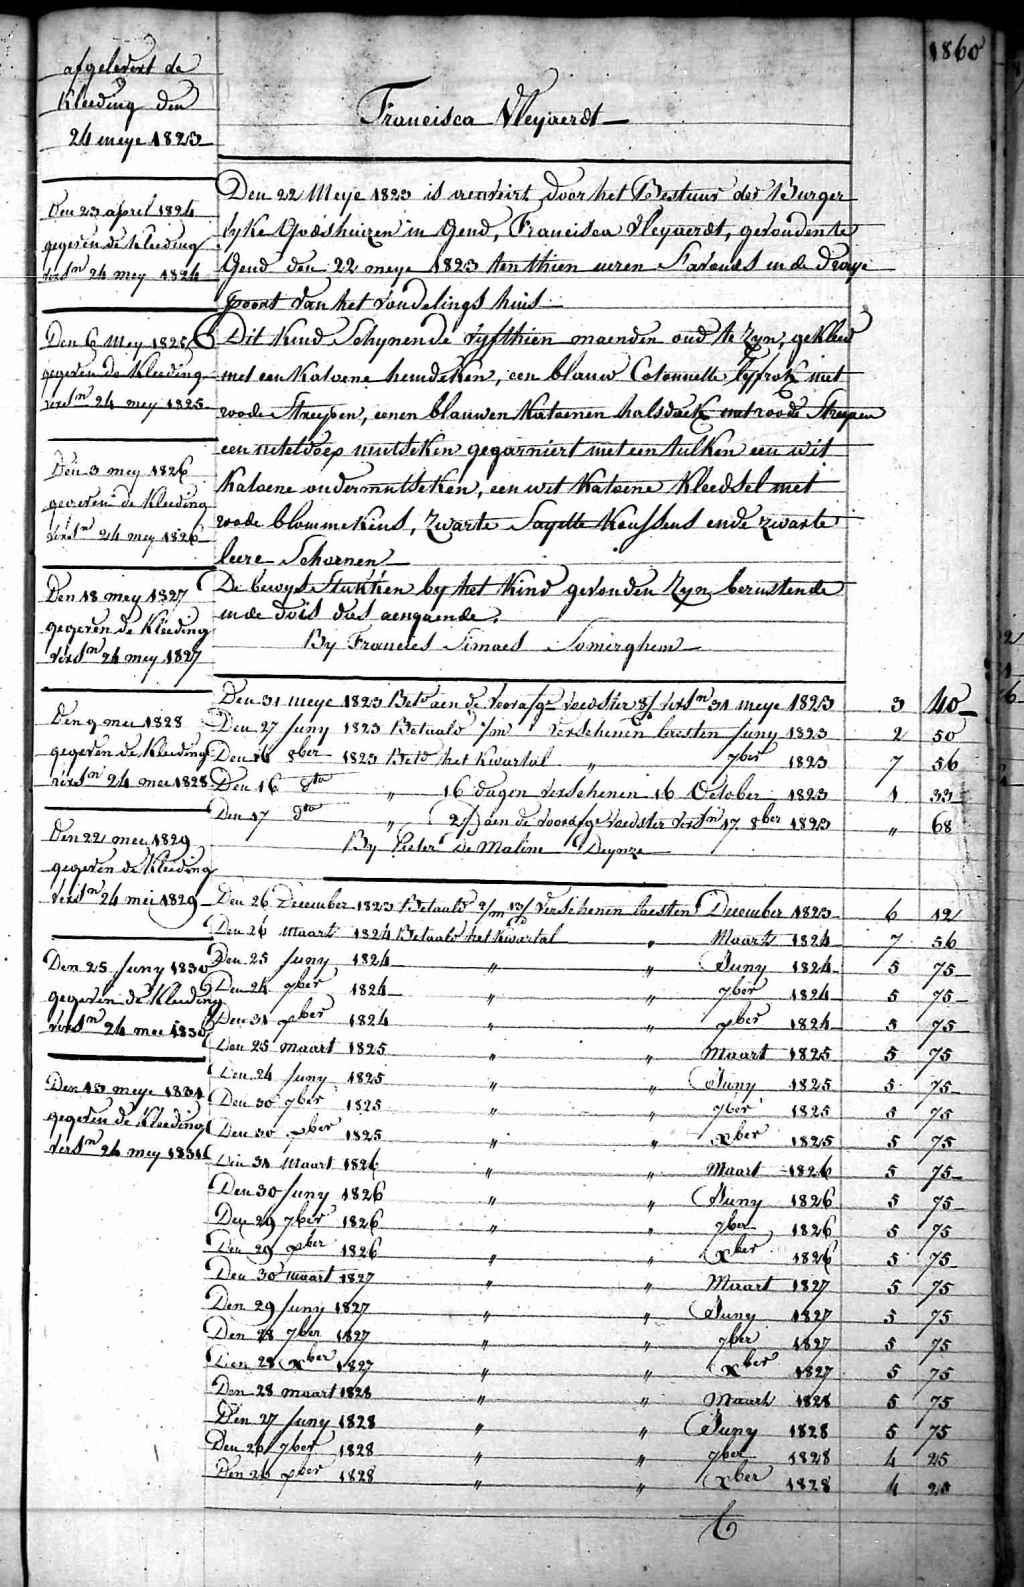 1860
afgelevert de
Kleeding den
24 meye 1823
Francisca Vleyaerdt
Den 23 april 1824
gegeven de kleeding
versn 24 mey 1824
Den 6 Mey 1825
gegeven de Kleeding
versn 24 mey 1825
Den 3 mey 1826
gegeven de Kleeding
versn 24 mey 1826
Den 18 mey 1827
gegeven de Kleeding
versn 24 mey 1827
Den 9 mei 1828
gegeven de Kleeding
versn 24 mei 1828
Den 22 mei 1829
gegeven de Kleeding
versn 24 mei 1829
Den 25 Juny 1830
gegeven de Kleeding
versn 24 mei 1830
Den 13 meye 1831
gegeven de Kleeding
versn 24 mey 1831
Den 22 Meye 1823 is door het Bestuur der Burger
lyke Godshuizen in Gend, Francisca Vleyaerdt, gevonden te
Gend den 22 meye 1823 ten thien uren Savonds in de Draye
poort van het vondelings huis
Dit Kind Schynende vyfthien maenden oud te zyn, gekleed
met een Katoene hemdeken, een blauw Cotonnette lyfrok met
roode Streypen, eenen blauwen Katoenen halsdoek met roode Streypen
een neteldoex mutseken gegarniert met een tulken een wit
Katoene ondermutseken, een wit Katoene Kleedsel met
roode blommekens, Zwarte Sayette Koussens ende zwarte
leere Schoenen
De bewys Stukken by het Kind gevonden Zyn berustende
in de dois das aengaende.
By Francies Simaes Somerghem
Den 31 meye 1823 Beto aen de voorsge voedster 8/ versn 31 meye 1823 3 40
Den 27 Juny 1823 Betaald 1/m verschenen laesten Juny 1823 2 50
Den 16 8ber 1823 Beto het Kwartal " 7ber 1823 7 56
Den 16 dto " 16 dagen verschenen 16 October 1823 1 33
Den 17 dto " aen de voorsge voedster versn 17 8ber 1823 " 68
By Pieter De Maline Deynze
Den 26 December 1823 Betaald 2/m 13/ verschenen laesten December 1823 6 12
Den 26 Maart 1824 Betaald het Kwartal " Maart 1824 7 56
Den 25 Juny 1824 " " Juny 1824 5 75
Den 24 7ber 1824 " " 7ber 1824 5 75
Den 31 xber 1824 " " xber 1824 5 75
Den 25 maart 1825 " " Maart 1825 5 75
Den 24 Juny 1825 " " Juny 1825 5 75
Den 30 7ber 1825 " " 7ber 1825 5 75
Den 30 xber 1825 " " xber 1825 5 75
Den 31 Maart 1826 " " Maart 1826 5 75
Den 30 Juny 1826 " " Juny 1826 5 75
Den 29 7ber 1826 " " 7ber 1826 5 75
Den 29 xber 1826 " " xber 1826 5 75
Den 30 maart 1827 " " Maart 1827 5 75
Den 29 Juny 1827 " " Juny 1827 5 75
Den 28 7ber 1827 " " 7ber 1827 5 75
Den 28 xber 1827 " " xber 1827 5 75
Den 28 maart 1828 " " Maart 1828 5 75
Den 27 Juny 1828 " " Juny 1828 5 75
Den 26 7ber 1828 " " 7ber 1828 4 25
Den 26 xber 1828 " " xber 1828 4 25